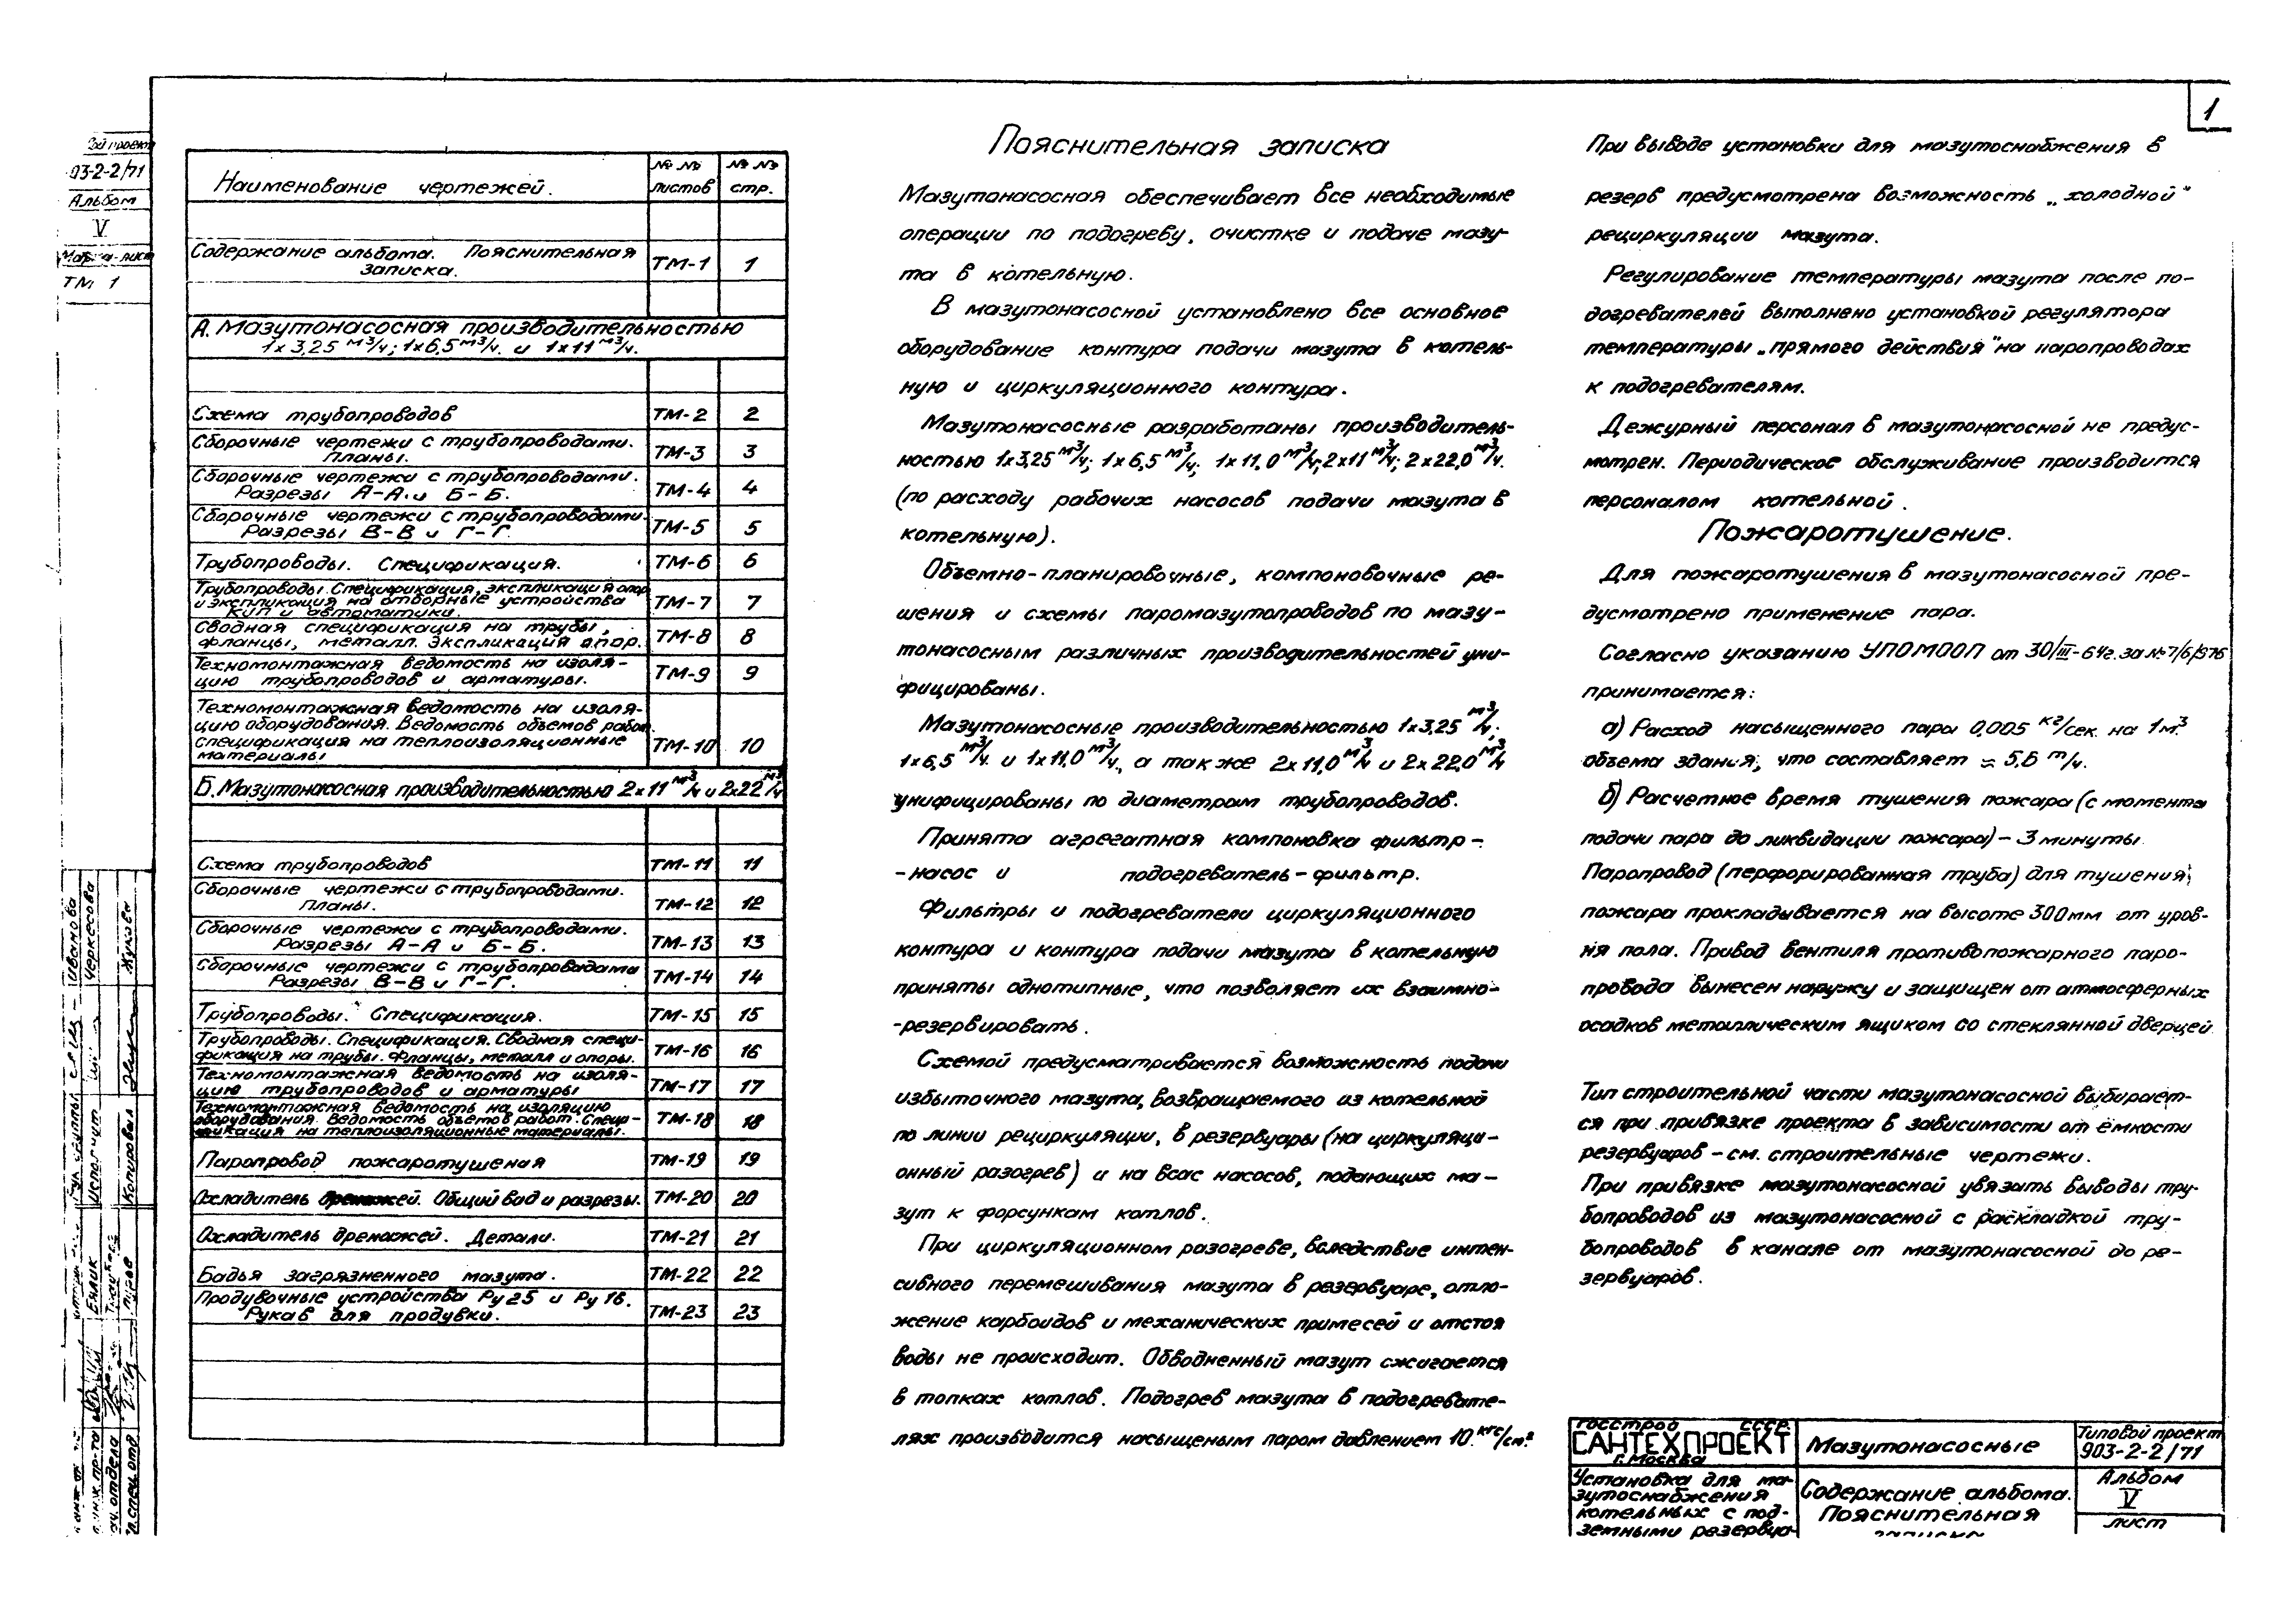 1
93-2-2/71
Альбом
V
ТМ 1
Наименование чертежей.
№ №
листов
№ №
стр.
Содержание альбома. Пояснительная
записка.
ТМ-1
1
А. Мазутонасосная производительностью
1х3,25 м³/ч; 1х6,5 м³/ч. и 1х11 м³/ч.
Схема трубопроводов
ТМ-2
2
Сборочные чертежи с трубопроводами.
Планы.
ТМ-3
3
Сборочные чертежи с трубопроводами.
Разрезы А-А и Б-Б.
ТМ-4
4
Сборочные чертежи с трубопроводами.
Разрезы В-В и Г-Г.
ТМ-5
5
Трубопроводы. Спецификация.
ТМ-6
6
Трубопроводы. Спецификация, экспликация опор
и экспликация на отборные устройства
КИП и автоматики.
ТМ-7
7
Сводная спецификация на трубы,
фланцы, металл. Экспликация опор.
ТМ-8
8
Техномонтажная ведомость на изоля-
цию трубопроводов и арматуры.
ТМ-9
9
Техномонтажная ведомость на изоля-
цию оборудования. Ведомость объемов работ.
Спецификация на теплоизоляционные
материалы
ТМ-10
10
Б. Мазутонасосная производительностью 2х11 м³/ч и 2х22 м³/ч
Схема трубопроводов
ТМ-11
11
Сборочные чертежи с трубопроводами.
Планы.
ТМ-12
12
Сборочные чертежи с трубопроводами.
Разрезы А-А и Б-Б.
ТМ-13
13
Сборочные чертежи с трубопроводами
Разрезы В-В и Г-Г.
ТМ-14
14
Трубопроводы. Спецификация.
ТМ-15
15
Трубопроводы. Спецификация. Сводная специ-
фикация на трубы. Фланцы, металл и опоры.
ТМ-16
16
Техномонтажная ведомость на изоля-
цию трубопроводов и арматуры
ТМ-17
17
Техномонтажная ведомость на изоляцию
оборудования. Ведомость объемов работ. Специ-
фикация на теплоизоляционные материалы.
ТМ-18
18
Паропровод пожаротушения
ТМ-19
19
Охладитель дренажей. Общий вид и разрезы.
ТМ-20
20
Охладитель дренажей. Детали.
ТМ-21
21
Бадья загрязненного мазута.
ТМ-22
22
Продувочные устройства Ру25 и Ру16.
Рукав для продувки.
ТМ-23
23
Пояснительная записка
Мазутонасосная обеспечивает все необходимые
операции по подогреву, очистке и подаче мазу-
та в котельную.
В мазутонасосной установлено все основное
оборудование контура подачи мазута в котель-
ную и циркуляционного контура.
Мазутонасосные разработаны производитель-
ностью 1х3,25 м³/ч; 1х6,5 м³/ч; 1х11,0 м³/ч; 2х11 м³/ч; 2х22,0 м³/ч.
(по расходу рабочих насосов подачи мазута в
котельную).
Объемно-планировочные, компоновочные ре-
шения и схемы паромазутопроводов по мазу-
тонасосным различных производительностей уни-
фицированы.
Мазутонасосные производительностью 1х3,25 м³/ч;
1х6,5 м³/ч. и 1х11,0 м³/ч., а также 2х11,0 м³/ч и 2х22,0 м³/ч
унифицированы по диаметрам трубопроводов.
Принята агрегатная компоновка фильтр-
-насос и подогреватель-фильтр.
Фильтры и подогреватели циркуляционного
контура и контура подачи мазута в котельную
приняты однотипные, что позволяет их взаимно-
-резервировать.
Схемой предусматривается возможность подачи
избыточного мазута, возвращаемого из котельной
по линии рециркуляции, в резервуары (на циркуляци-
онный разогрев) и на всас насосов, подающих ма-
зут к форсункам котлов.
При циркуляционном разогреве, вследствие интен-
сивного перемешивания мазута в резервуаре, отло-
жение карбоидов и механических примесей и отстоя
воды не происходит. Обводненный мазут сжигается
в топках котлов. Подогрев мазута в подогревате-
лях производится насыщеным паром давлением 10 кгс/см²
При выводе установки для мазутоснабжения в
резерв предусмотрена возможность „холодной"
рециркуляции мазута.
Регулирование температуры мазута после по-
догревателей выполнено установкой регулятора
температуры „прямого действия" на паропроводах
к подогревателям.
Дежурный персонал в мазутонасосной не предус-
мотрен. Периодическое обслуживание производится
персоналом котельной.
Пожаротушение.
Для пожаротушения в мазутонасосной пре-
дусмотрено применение пара.
Согласно указанию УПОМООП от 30/III-64г. за №7/6/976
принимается:
а) Расход насыщенного пара 0,005 кг/сек. на 1м³
объема здания, что составляет ≈ 5,6 т/ч.
б) Расчетное время тушения пожара (с момента
подачи пара до ликвидации пожара) - 3 минуты.
Паропровод (перфорированная труба) для тушения
пожара прокладывается на высоте 300мм от уров-
ня пола. Привод вентиля противопожарного паро-
провода вынесен наружу и защищен от атмосферных
осадков металлическим ящиком со стеклянной дверцей.
Тип строительной части мазутонасосной выбирает-
ся при привязке проекта в зависимости от емкости
резервуаров - см. строительные чертежи.
При привязке мазутонасосной увязать выводы тру-
бопроводов из мазутонасосной с раскладкой тру-
бопроводов в канале от мазутонасосной до ре-
зервуаров.
Госстрой СССР
САНТЕХПРОЕКТ
г. Москва
Мазутонасосные
Типовой проект
903-2-2/71
Установка для ма-
зутоснабжения
котельных с под-
земными резервуа-
Содержание альбома.
Пояснительная
записка
Альбом
V
лист
Иванова
Черкесова
Жукова
Исполнит
Копировал
Енлик